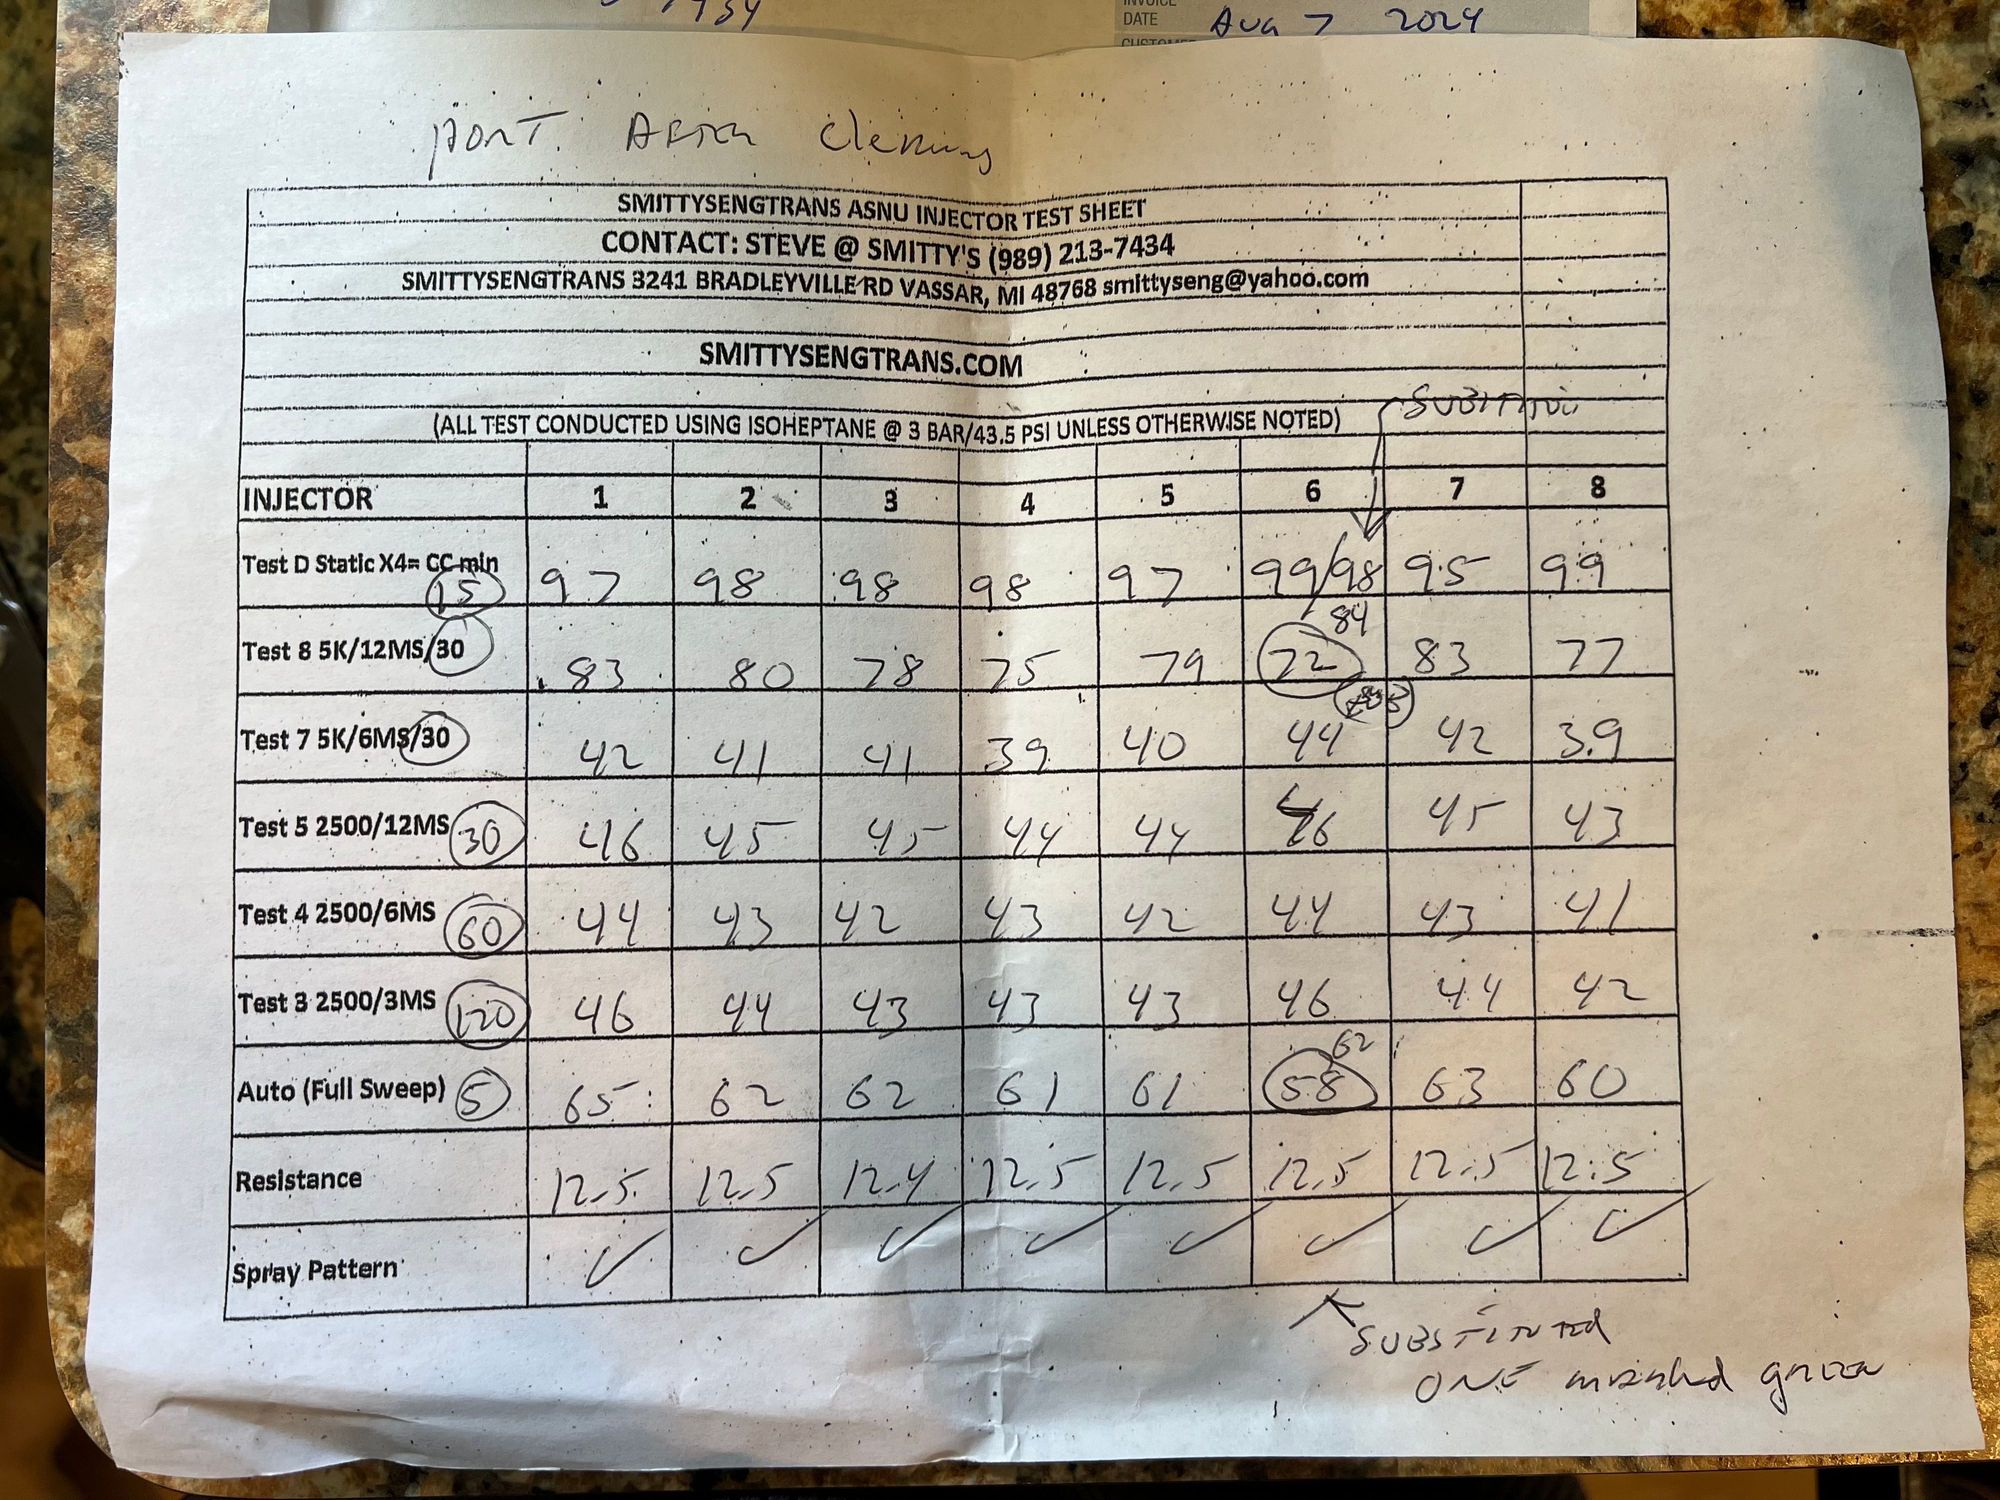 INVOICE
DATE Aug 7 2024
CUSTOMER
PORT. AFTER Cleaning
SMITTYSENGTRANS ASNU INJECTOR TEST SHEET
CONTACT: STEVE @ SMITTY'S (989) 213-7434
SMITTYSENGTRANS 3241 BRADLEYVILLE RD VASSAR, MI 48768 smittyseng@yahoo.com
SMITTYSENGTRANS.COM
SUBSTITUTED
(ALL TEST CONDUCTED USING ISOHEPTANE @ 3 BAR/43.5 PSI UNLESS OTHERWISE NOTED)
INJECTOR 1 2 3 4 5 6 7 8
Test D Static X4= CC min 15 97 98 98 98 97 99/98 95 99
Test 8 5K/12MS/30 83 80 78 75 79 72 84 83 77
Test 7 5K/6MS/30 42 41 41 39 40 44 42 39
Test 5 2500/12MS 30 46 45 45 44 44 46 45 43
Test 4 2500/6MS 60 44 43 42 43 42 44 43 41
Test 3 2500/3MS 120 46 44 43 43 43 46 44 42
Auto (Full Sweep) 5 65 62 62 61 61 58 62 63 60
Resistance 12.5 12.5 12.4 12.5 12.5 12.5 12.5 12.5
Spray Pattern ✓ ✓ ✓ ✓ ✓ ✓ ✓ ✓
SUBSTITUTED
ONE marked green